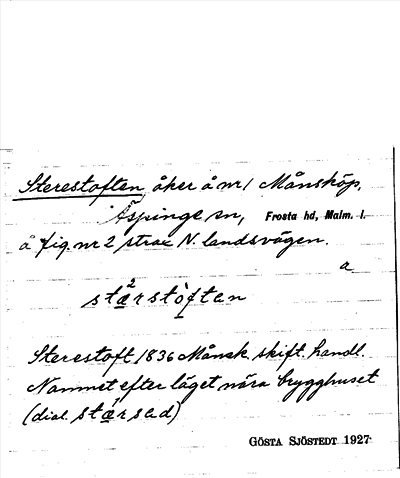 Sterestoften, åker å nr 1 Månsköp,
Äspinge sn, Frosta hd, Malm. l.
å fig. nr 2 strax N. landsvägen.
a.
stæ²rstòftan
Sterestoft 1836 Månsk. skift. handl.
Namnet efter läget nära brygghuset
(dial. stǽrsad)
GÖSTA SJÖSTEDT 1927